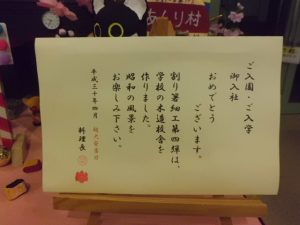 あんり村
ご入園・ご入学
御入社
おめでとう
ございます。
割り箸細工第四弾は、
学校の木造校舎を
作りました。
昭和の風景を
お楽しみ下さい。
平成三十年四月
料理長